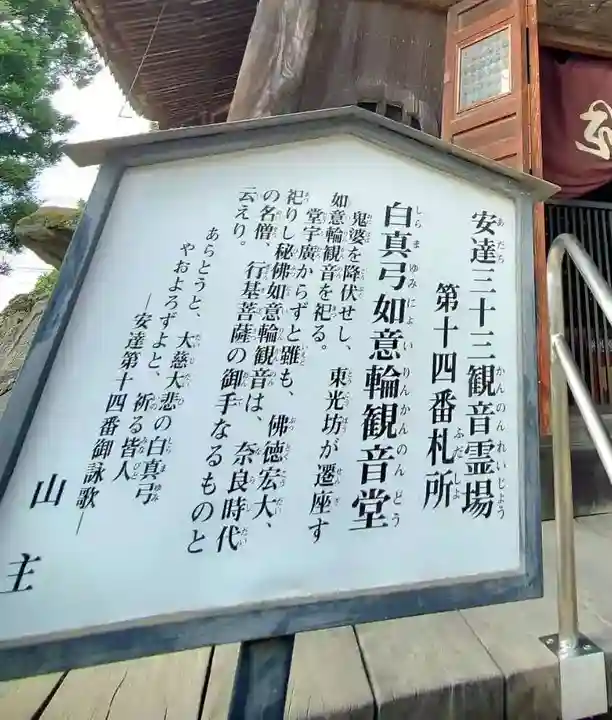 安達三十三観音霊場
第十四番札所
白真弓如意輪観音堂
鬼婆を降伏せし、東光坊が遷座す
如意輪観音を祀る。
堂宇廣からずと雖も、佛徳宏大、
祀りし秘佛如意輪観音は、奈良時代
の名僧、行基菩薩の御手なるものと
云えり。
あらとうと、大慈大悲の白真弓
やおよろずよと、祈る皆人
―安達第十四番御詠歌―
山主